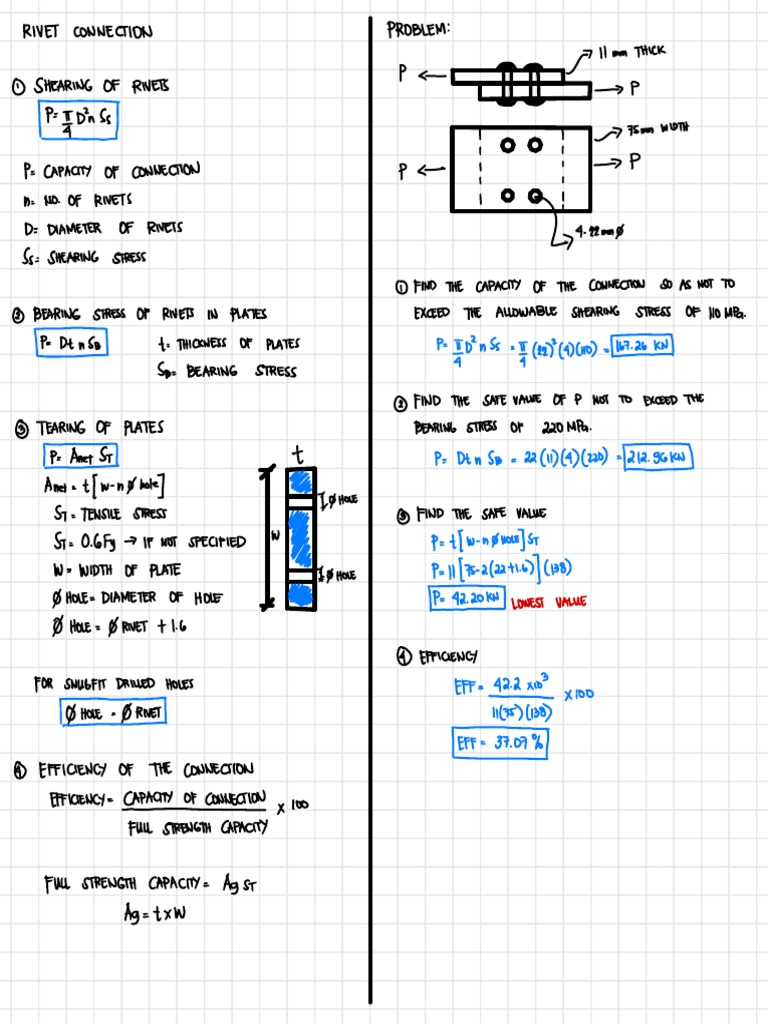 RIVET CONNECTION
① SHEARING OF RIVETS
P= π/4 D²n Ss
P= CAPACITY OF CONNECTION
n= NO. OF RIVETS
D= DIAMETER OF RIVETS
Ss= SHEARING STRESS
② BEARING STRESS OF RIVETS IN PLATES
P= Dt n SB
t= THICKNESS OF PLATES
SB= BEARING STRESS
③ TEARING OF PLATES
P= Anet ST
Anet = t[w-n Ø hole]
ST= TENSILE STRESS
ST= 0.6Fy → IF NOT SPECIFIED
W= WIDTH OF PLATE
Ø HOLE= DIAMETER OF HOLE
Ø HOLE = Ø RIVET + 1.6
t
W
Ø HOLE
Ø HOLE
FOR SNUGFIT DRILLED HOLES
Ø HOLE = Ø RIVET
④ EFFICIENCY OF THE CONNECTION
EFFICIENCY= CAPACITY OF CONNECTION / FULL STRENGTH CAPACITY x 100
FULL STRENGTH CAPACITY= Ag ST
Ag = t x W
PROBLEM:
11 mm THICK
P
P
75mm WIDTH
P
P
4-22mm Ø
① FIND THE CAPACITY OF THE CONNECTION SO AS NOT TO
EXCEED THE ALLOWABLE SHEARING STRESS OF 110 MPa.
P= π/4 D² n Ss = π/4 (22)²(4)(110) = 167.26 KN
② FIND THE SAFE VALUE OF P NOT TO EXCEED THE
BEARING STRESS OF 220 MPa.
P= Dt n SB = 22(11)(4)(220) = 212.96 KN
③ FIND THE SAFE VALUE
P= t[w-n Ø HOLE] ST
P= 11[75-2(22+1.6)](138)
P= 42.20 KN LOWEST VALUE
④ EFFICIENCY
EFF= 42.2 x10³ / 11(75)(138) x 100
EFF= 37.07 %